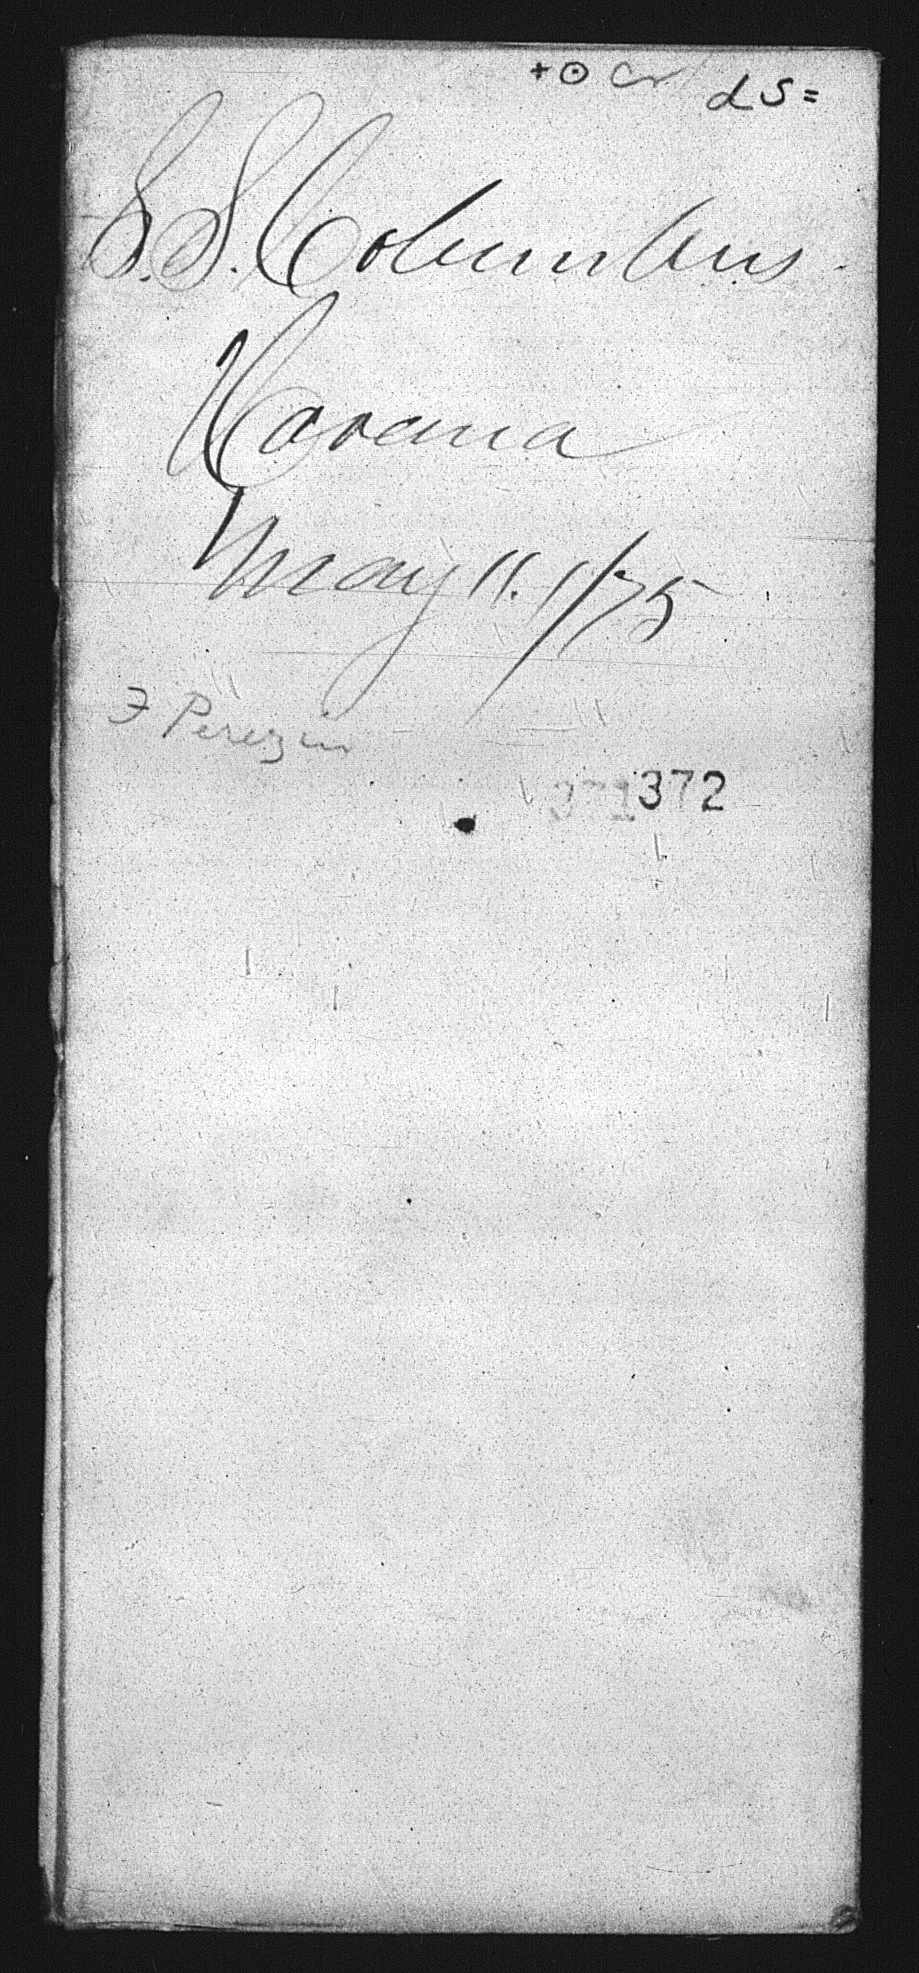 + ⊙ Cr ds=
S.S. Columbus.
Havana
May 11. 1/75
F Perezin
372